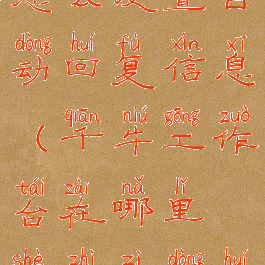 dòng huí fù xìn xī
动回复信息
qiān niú gōng zuò
（千牛工作
tái zài nǎ lǐ
台在哪里
shè zhì zì dòng huí